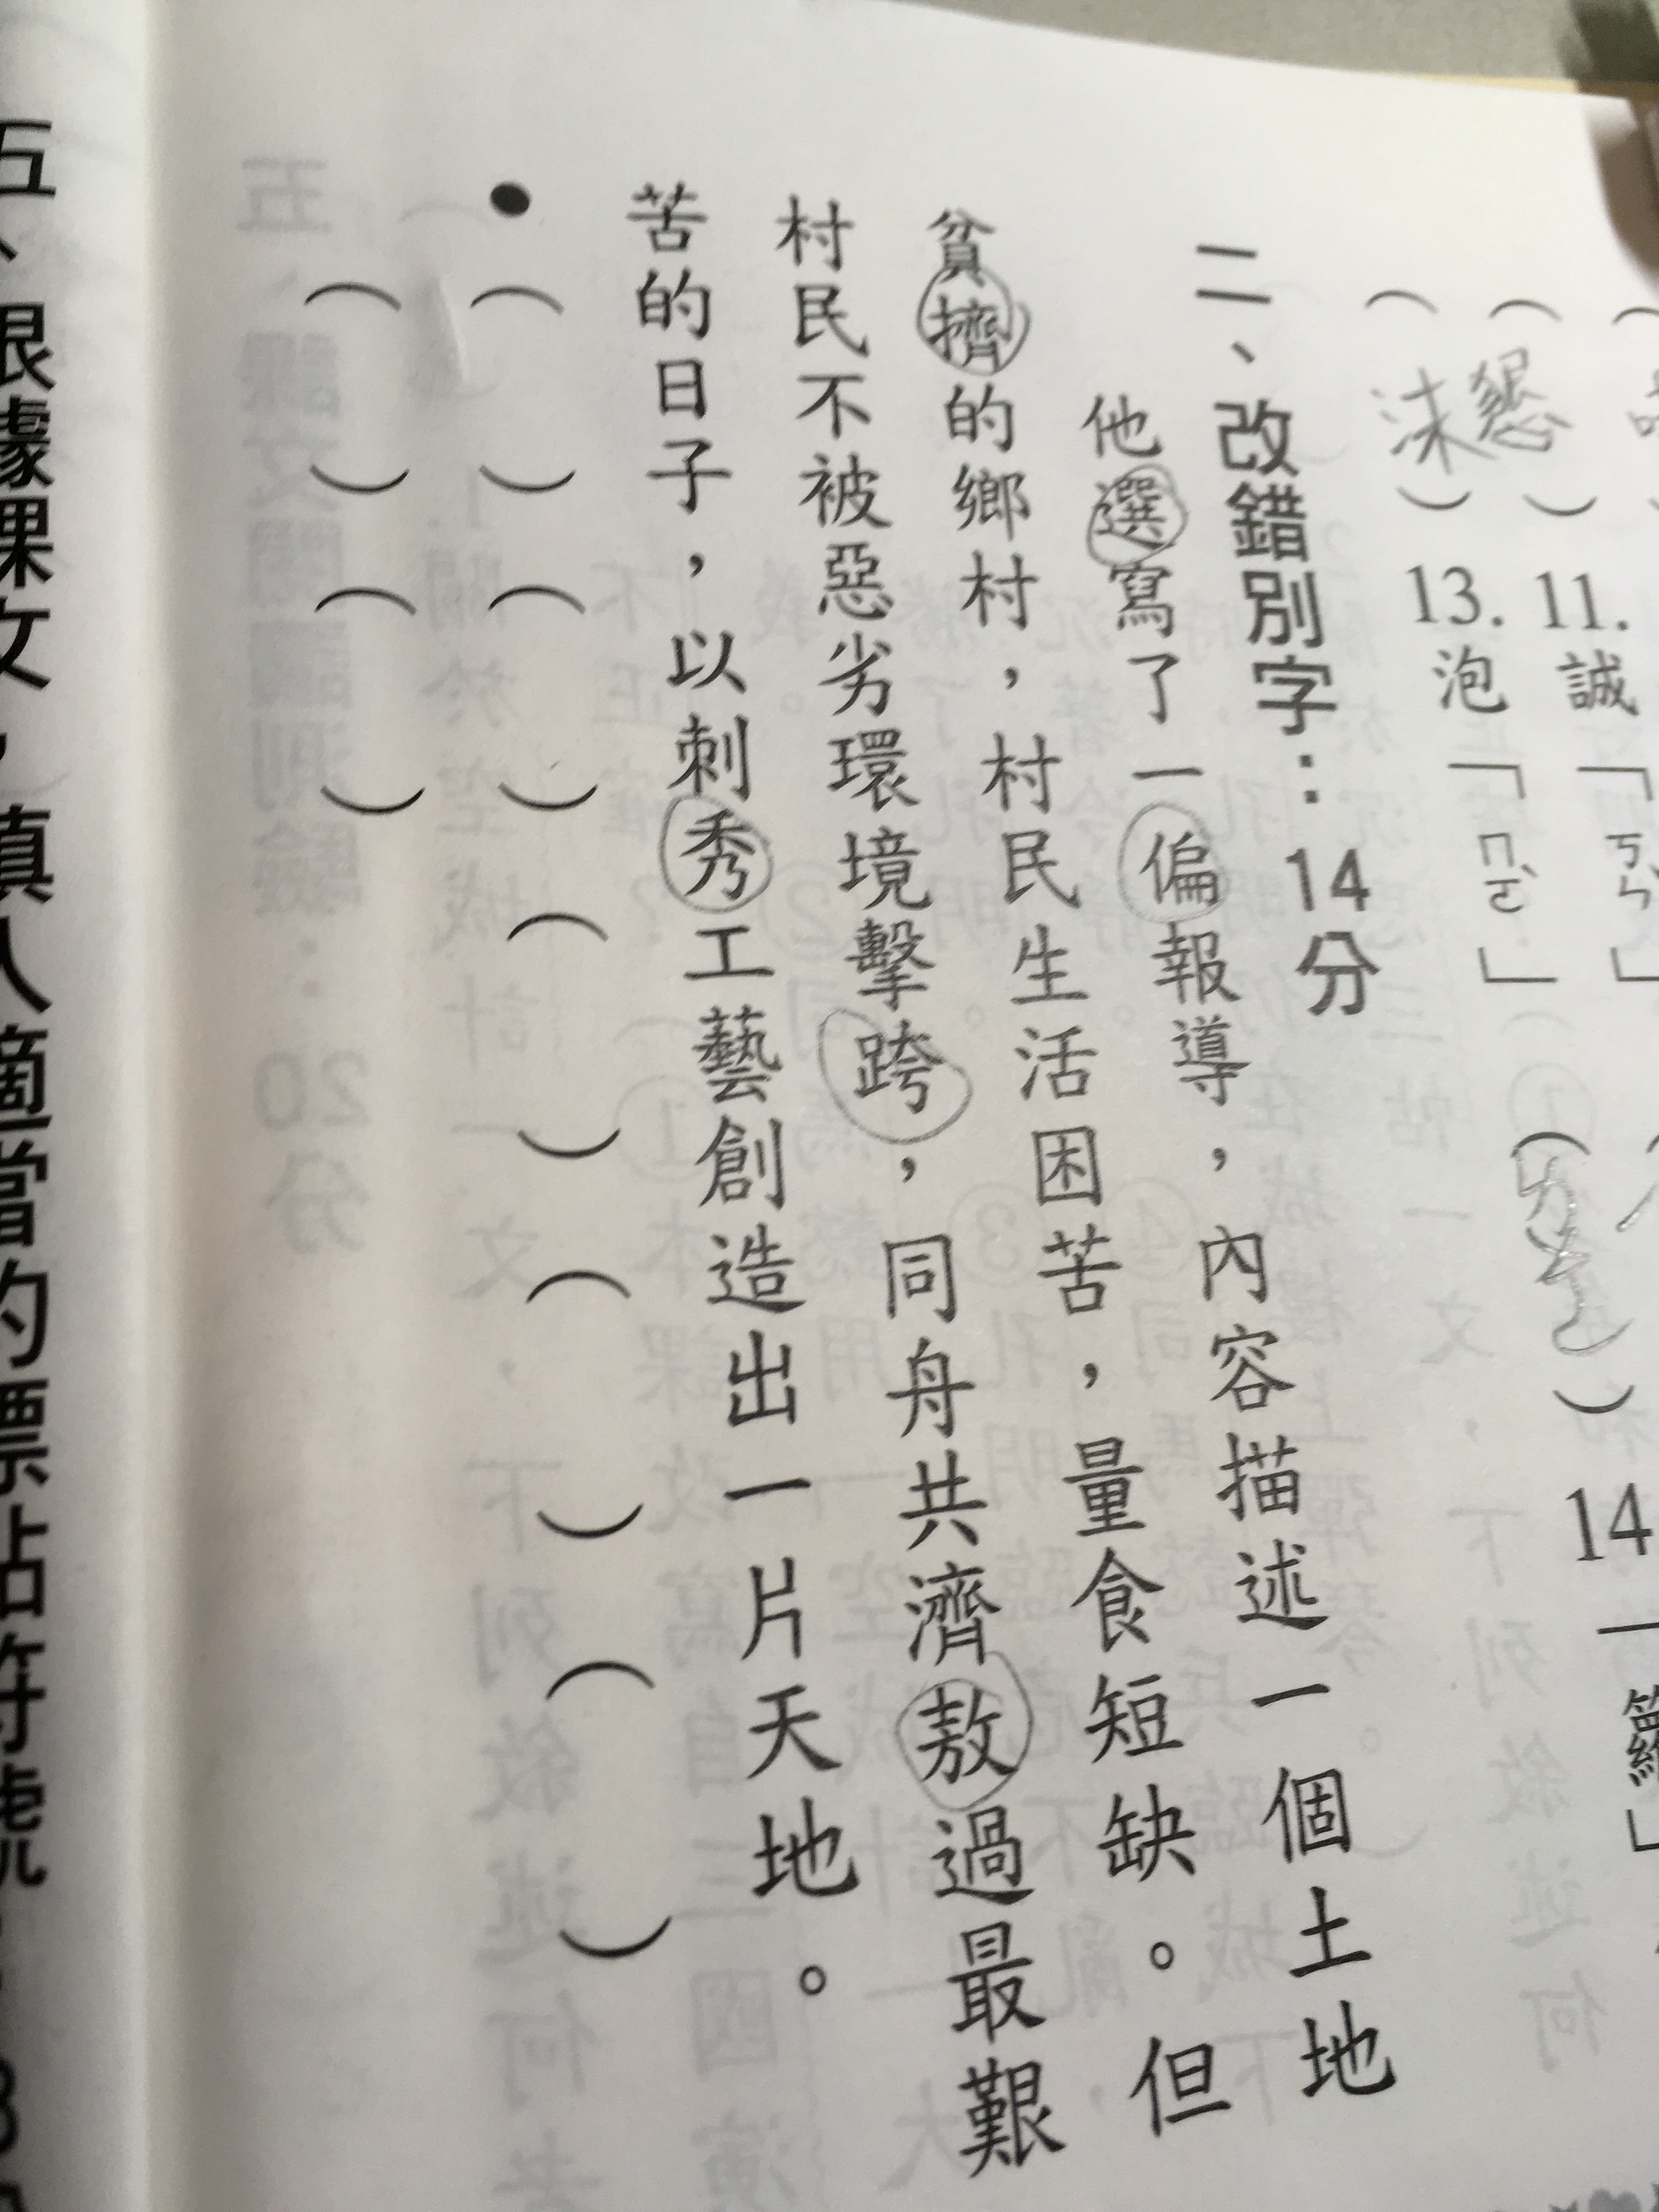 11.誠「ㄎㄣˇ」
(懇)
13.泡「ㄇㄛˋ」
(沫)
14
二、改錯別字：14分
他選寫了一偏報導，內容描述一個土地
貧擠的鄉村，村民生活困苦，量食短缺。但
村民不被惡劣環境擊跨，同舟共濟敖過最艱
苦的日子，以刺秀工藝創造出一片天地。
●( )( )( )( )( )
( )( )
五、根據課文，填入適當的標點符號